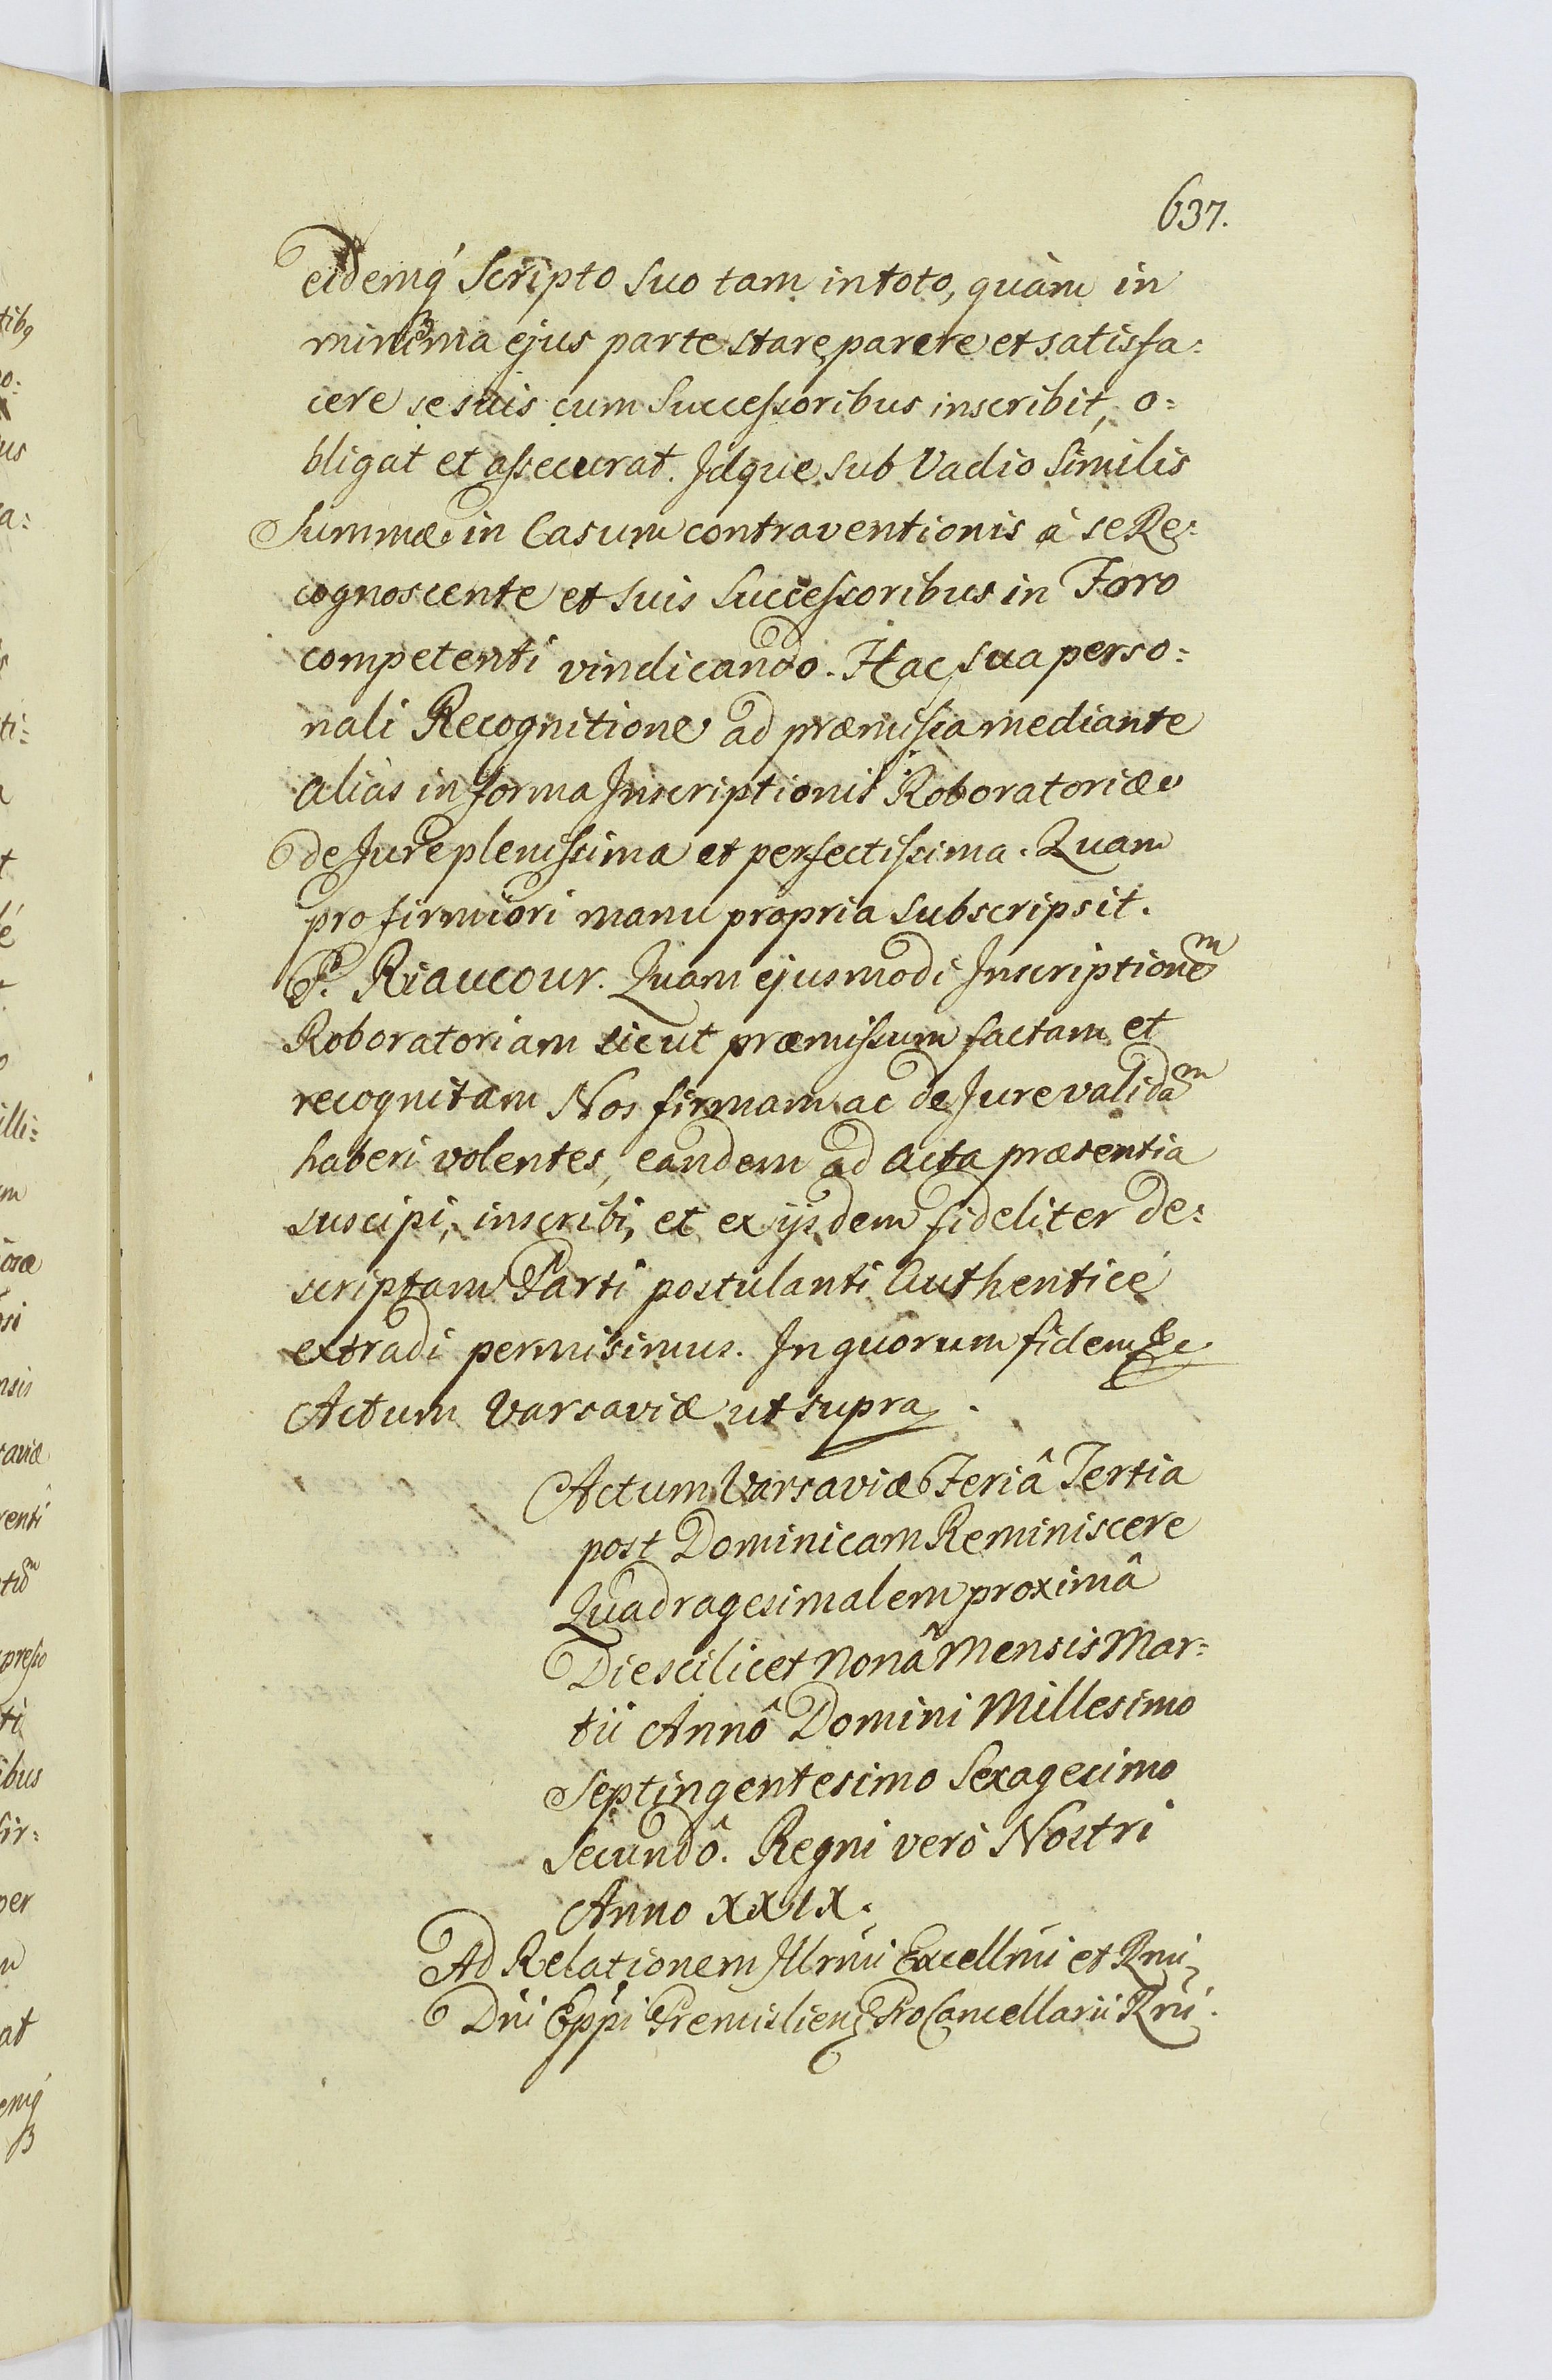 637.
eidemq́ Scripto Suo tam in toto, quàm in
minima ejus parte stare, parere et satisfa:
cere se suis cum Successoribus inscribit, o:
bligat et assecurat. Idque sub Vadio Similis
Summæ in Casum contraventionis à se Re:
cognoscente et suis Successoribus in Foro
competenti vindicando. Hac sua perso:
nali Recognitione ad præmissa mediante
aliàs in forma Inscriptionis Roboratoriæ
de Jure plenissima et perfectissima. Quam
pro firmiori manu propria subscripsit.
P. Riaucour. Quam ejusmodi Inscriptionem
Roboratoriam sicut præmissum factam et
recognitam Nos firmam ac de Jure validam
haberi volentes, eandem ad acta præsentia
suscipi, inscribi, et ex ijsdem fideliter de:
scriptam Parti postulanti Authenticè
extradi permisimus. In quorum fidem &c
Actum Varsaviæ ut supra.
Actum Varsaviæ Feriâ Tertia
post Dominicam Reminiscere
Quadragesimalem proximâ
Die scilicet Nonâ Mensis Mar:
tii Annô Domini Millesimo
Septingentesimo Sexagesimo
Secundô. Regni verò Nostri
Anno XXIX.
Ad Relationem Illrmi Excellmi et Rmi
Dni Eppi Premisliens ProCancellarii Rni.